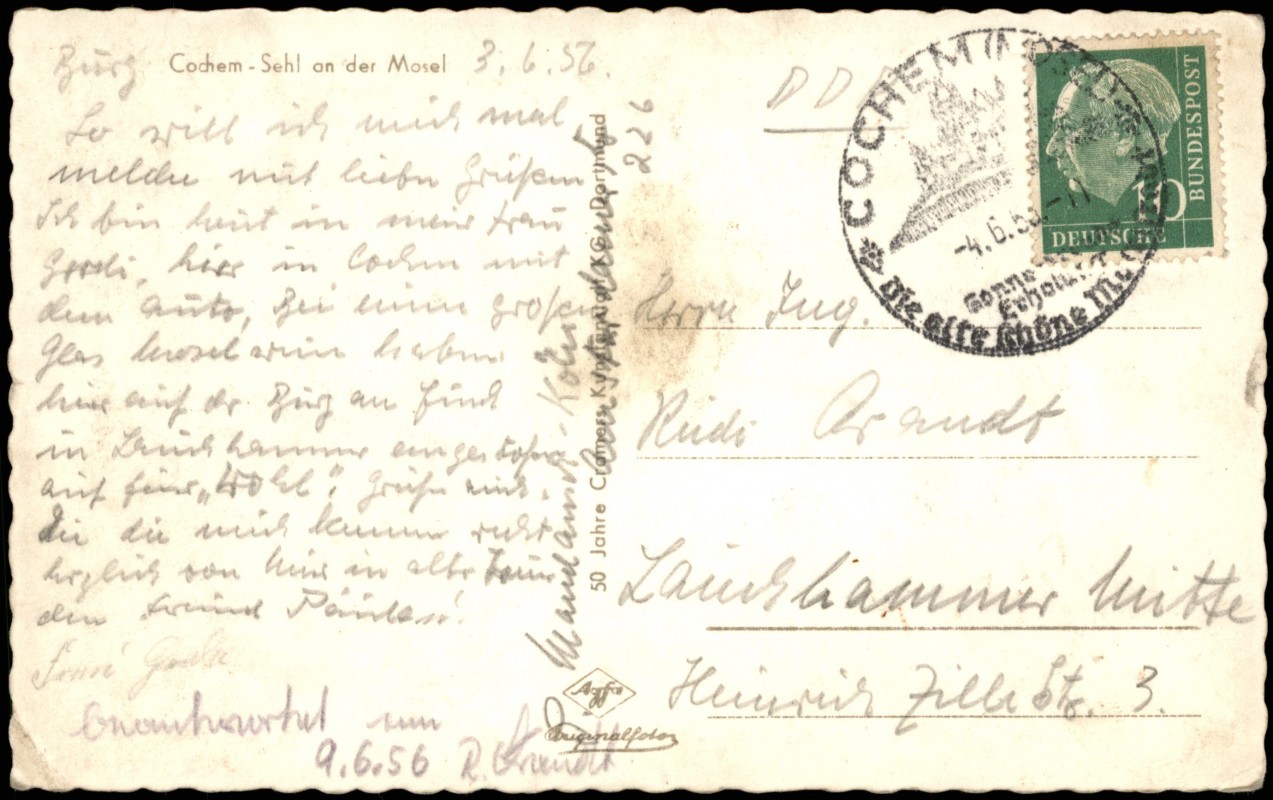 Burg Cochem - Sehl an der Mosel 3.6.56.
So will ich mich mal
melden mit lieben Grüßen
Ich bin heut in mein Frau
Gerdi, hier in Cochem mit
dem Auto, Bei einem großen
Glas Moselwein haben
hier auf der Burg an Euch
in Lauchhammer
auf Euer „Wohl“. Grüße mir
die die mich kennen recht
herzlich von hier in alter Treue
dein Freund
Beantwortet am
9.6.56 R. Arandt
50 Jahre Cramers Kunstanstalt KG., Dortmund
Köln
226
Agfa
Originalfoto
DDR
COCHEM (MOSEL)
-4.6.56.-
Sonne
Erholung
Die alte schöne
10
DEUTSCHE
BUNDESPOST
Herrn Ing.
Rudi Arandt
Lauchhammer Mitte
Heinrich Zille Str. 3.